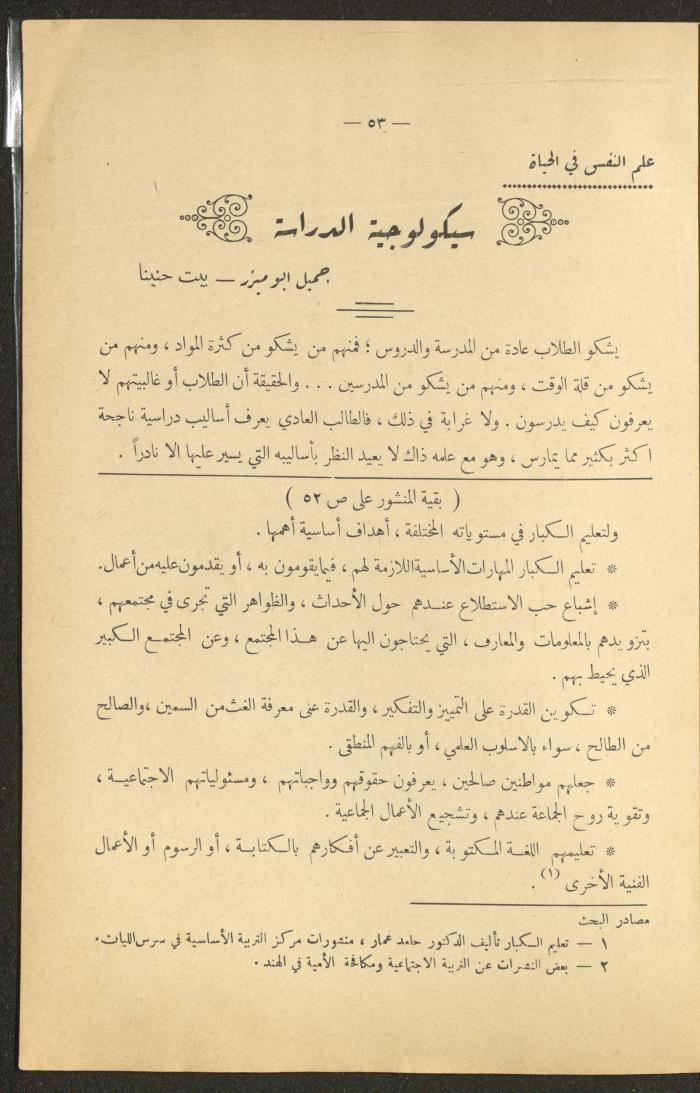 — ٥٣ —
علم النفس في الحياة
سيكولوجية الدراسة
جميل ابو ميزر — بيت حنينا
يشكو الطلاب عادة من المدرسة والدروس ؛ فمنهم من يشكو من كثرة المواد ، ومنهم من
يشكو من قلة الوقت ، ومنهم من يشكو من المدرسين . . . والحقيقة أن الطلاب أو غالبيتهم لا
يعرفون كيف يدرسون . ولا غرابة في ذلك ، فالطالب العادي يعرف أساليب دراسية ناجحة
اكثر بكثير مما يمارس ، وهو مع علمه ذاك لا يعيد النظر بأساليبه التي يسير عليها الا نادراً .
( بقية المنشور على ص ٥٢ )
ولتعليم الكبار في مستوياته المختلفة ، أهداف أساسية أهمها .
* تعليم الكبار المهارات الأساسية اللازمة لهم ، فيما يقومون به ، أو يقدمون عليه من أعمال.
* إشباع حب الاستطلاع عندهم حول الأحداث ، والظواهر التي تجرى في مجتمعهم ،
بتزويدهم بالمعلومات والمعارف ، التي يحتاجون اليها عن هذا المجتمع ، وعن المجتمع الكبير
الذي يحيط بهم .
* تكوين القدرة على التمييز والتفكير ، والقدرة على معرفة الغث من السمين ،والصالح
من الطالح ، سواء بالاسلوب العلمي ، أو بالفهم المنطقى .
* جعلهم مواطنين صالحين ، يعرفون حقوقهم وواجباتهم ، ومسئولياتهم الاجتماعية ،
وتقوية روح الجماعة عندهم ، وتشجيع الأعمال الجماعية .
* تعليمهم اللغة المكتوبة ، والتعبير عن أفكارهم بالكتابة ، أو الرسوم أو الأعمال
الفنية الأخرى (١) .
مصادر البحث
١ — تعليم الكبار تأليف الدكتور حامد عمار ، منشورات مركز التربية الأساسية في سرس الليان.
٢ — بعض النشرات عن التربية الاجتماعية ومكافحة الأمية في الهند .